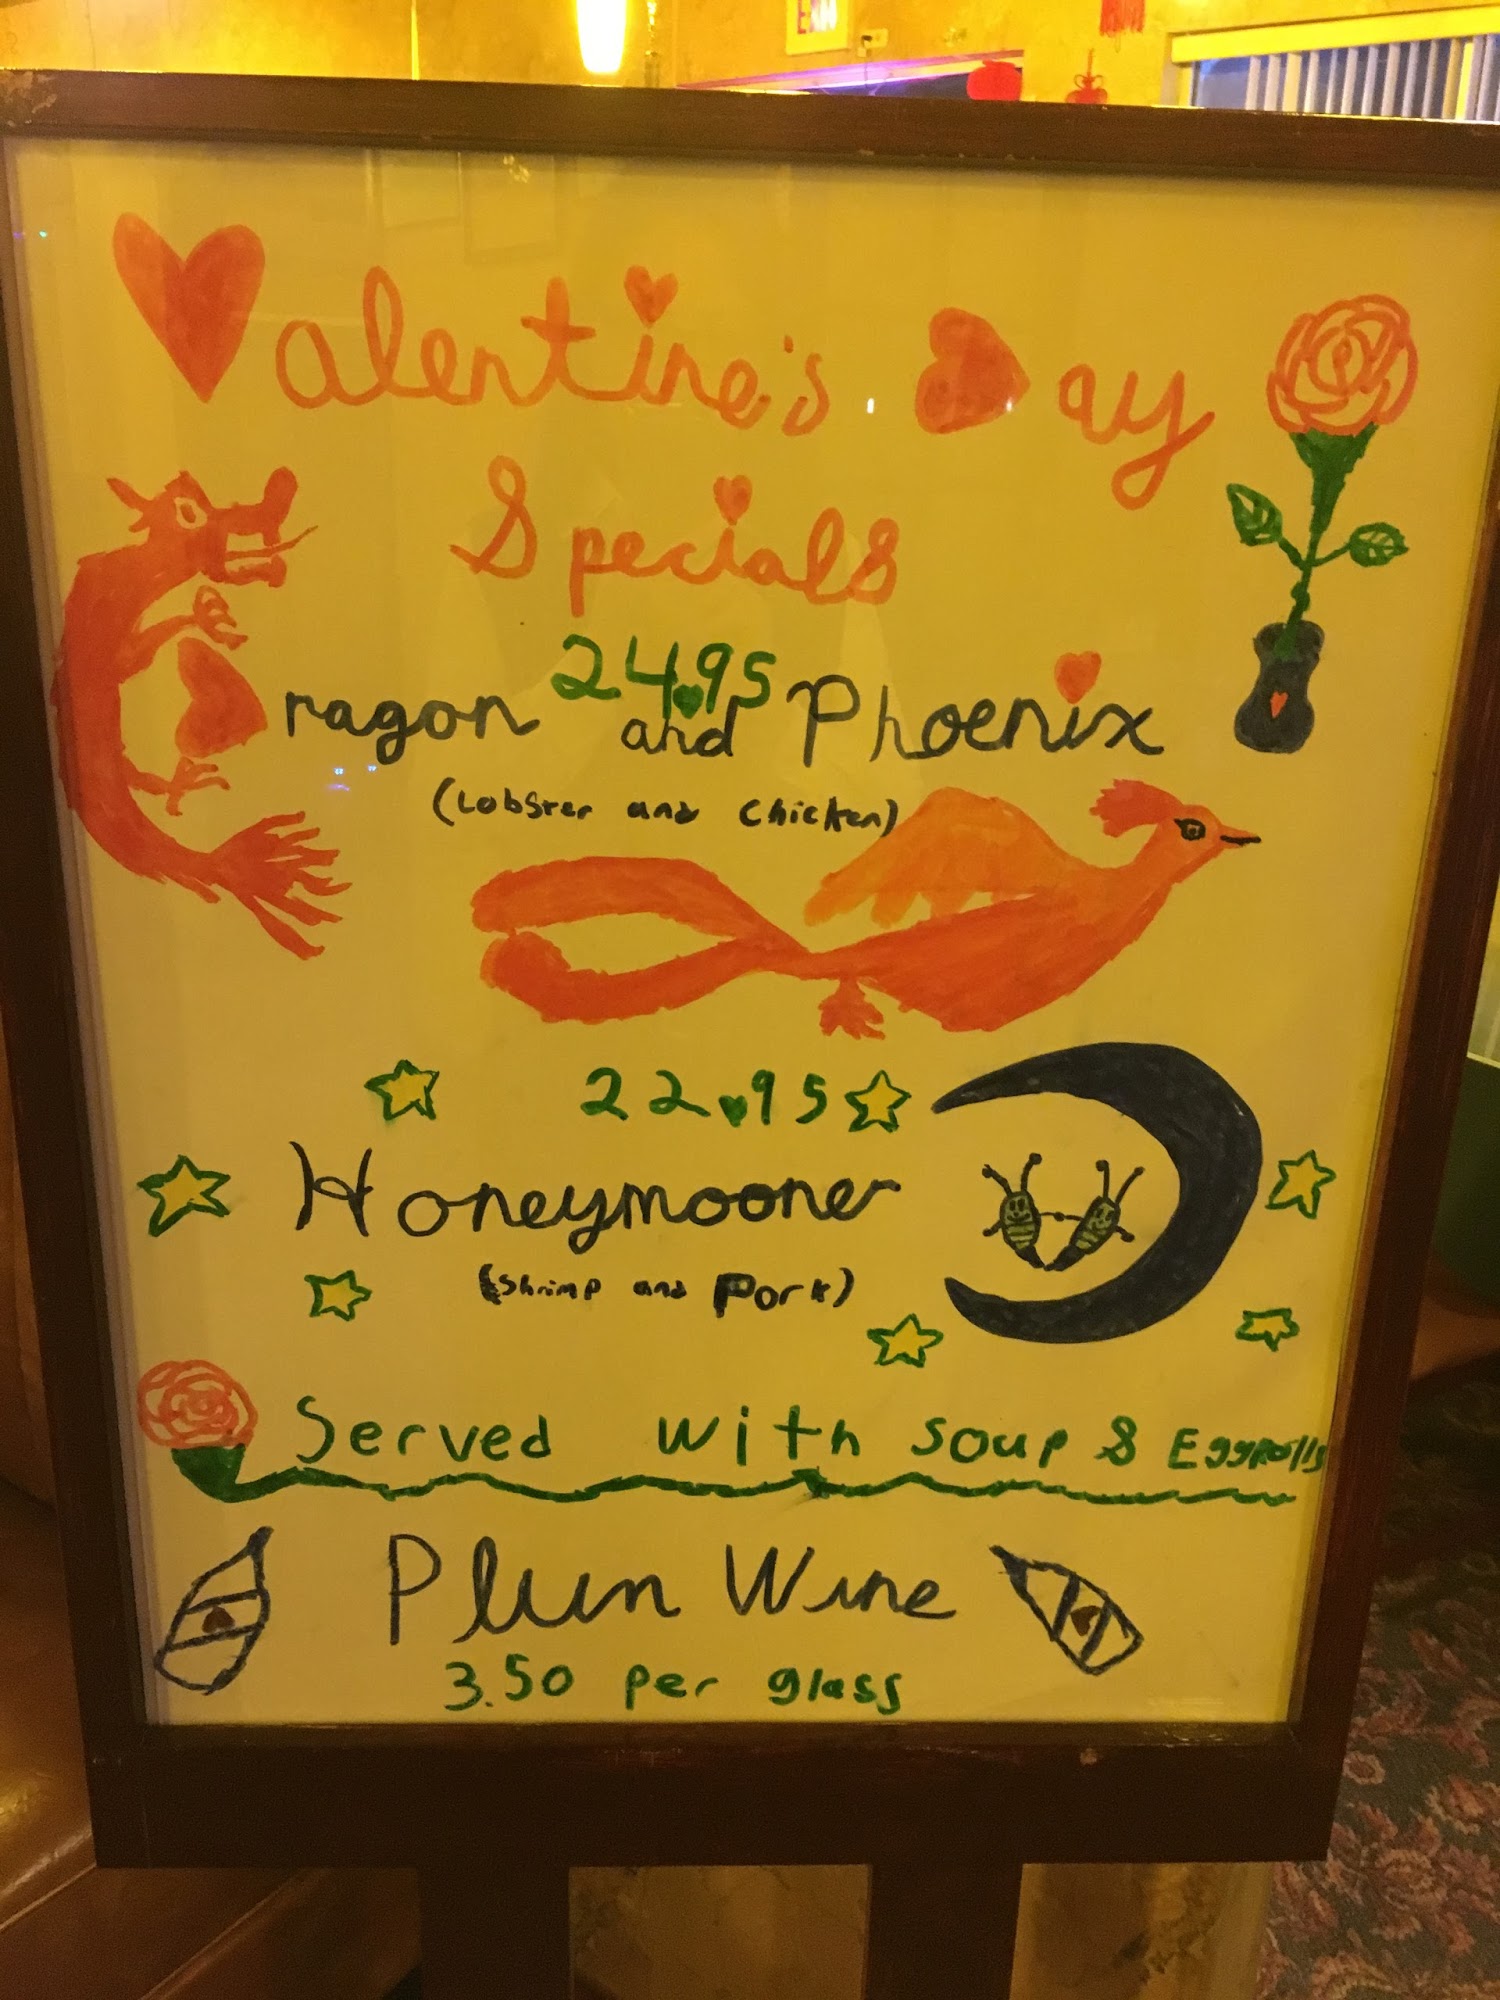 Valentine's Day
Specials
24.95
Dragon and Phoenix
(Lobster and Chicken)
22.95
Honeymooner
(Shrimp and Pork)
Served with Soup & Eggrolls
Plum Wine
3.50 per glass